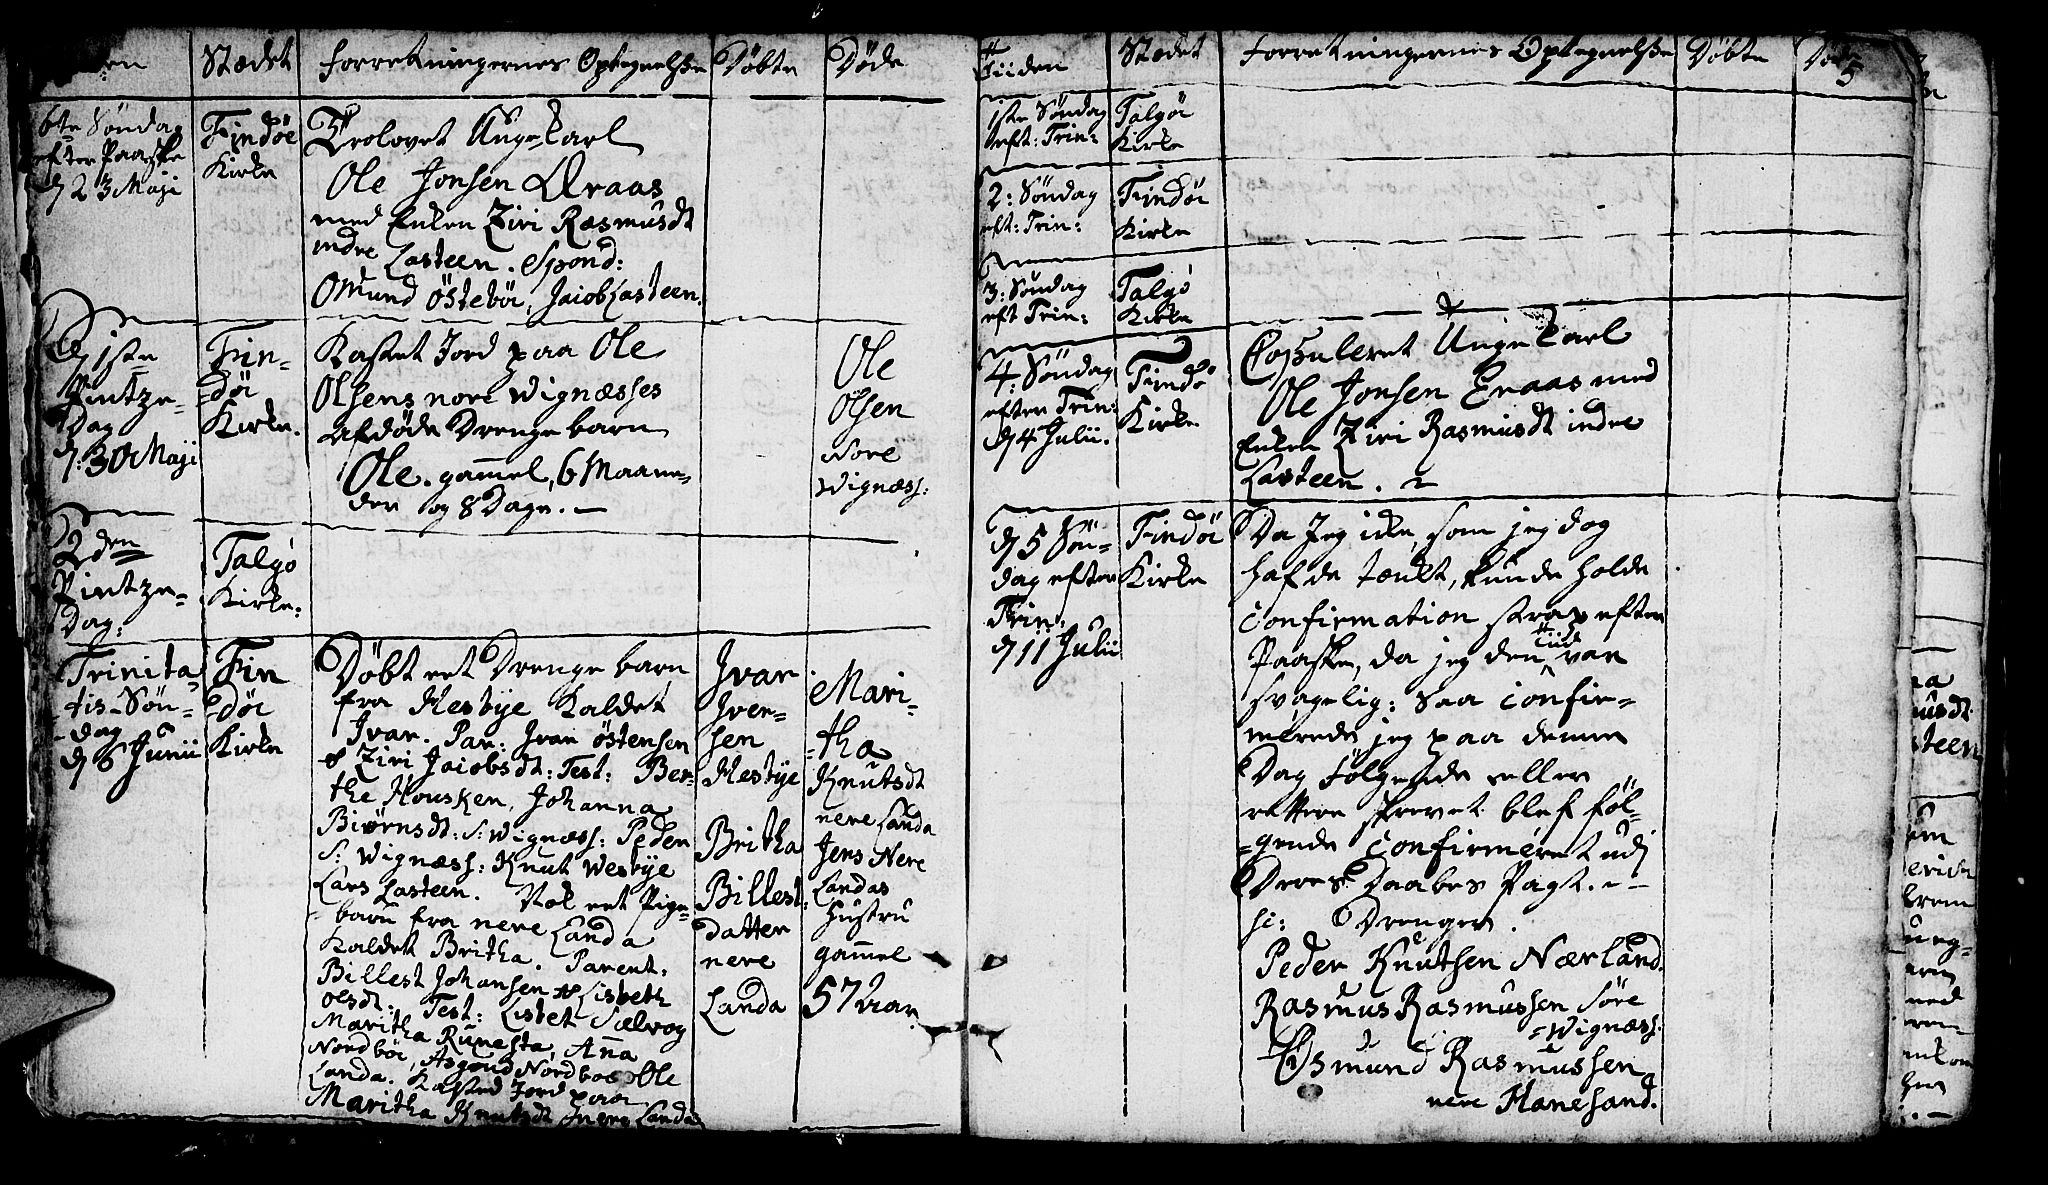 Stædet
Forretningernes Optegnelsse
Døbte
Døde
6te Søndag
efter Paaske
d 23 Maji
Findöe
Kirke
Trolovet Unge karl
Ole Jonsen Æraas
med Enken Ziri Rasmusdt
indre Lasteen. Spond:
Omund Östebör, Jaiob Lasteen.
d 1ste
Pintze-
Dag
d. 30 Maji
Fin-
döe
Kirke.
Kastet Jord paa Ole
Olsens nore Wignæsses
afdöde Drenge barn
Ole. gammel, 6 Maane-
der og 8 Dage.
Ole
Olsen
Nore
Wignæss:
2den
Pintze-
Dag:
Talgö
Kirke:
Trinita-
tis-Søn-
dag
d 6 Junii
Fin
döe
Kirke
Döbt eet Drenge barn
fra Hesbye Kaldet
Ivar. Par: Ivar Östensen
& Ziri Jaiobsdt: Test: Ber-
the Housken, Johanna
Biörnsdt: S: Wignæss: Peder
S: Wignæss: Knut Wesbye
Lars Lasteen. Nok eet Pige-
barn fra nere Landa
Kaldet Britha. Parent:
Billest Johansen & Lisbeth
Olsdt: Test: Lisbet Sælvog
Maritha Runesta, Anna
Nordböe, Asgoud Nordboe Ole
Landa. Kasted Jord paa
Maritha Knutsdt nere Landa
Ivar
Iver-
sen
Hesbye
Britha
Billest:
datter
nere
Landa
Mari-
tha
Knutsdt
nere Landa
Jens Nere
Landas
Hustru
gammel
57 aar.
Tiiden
Stædet
Forretningernes Optegnelsse
Døbte
5
1ste Søndag
eft: Trin:
Talgöe
Kirke
2: Søndag
eft: Trin:
Findöe
Kirke
3: Søndag
eft Trin:
Talgö
Kirke
4: Søndag
efter Trin:
d 4 Julii.
Findöe
Kirke
Copuleret Unge karl
Ole Jonsen Eraas med
Enken Ziri Rasmusdt indre
Lasteen.
d 5 Søn-
dag efter
Trin:
d 11 Julii
Findöe
Kirke
Da Jeg icke, som jeg dog
hafde tænkt, kunde holde
Confirmation strax efter
Paaske, da jeg den Tiid var
svagelig: Saa Confir-
merede jeg paa denne
Dag fölgende eller
rettere skrevet blef föl-
gende Confirmeret udj
Deres Daabes Pagt.
Drenger.
Peder Knutsen Nærland.
Rasmus Rasmussen Söre
Wignæss.
Osmund Rasmussen
nere Hanesand.